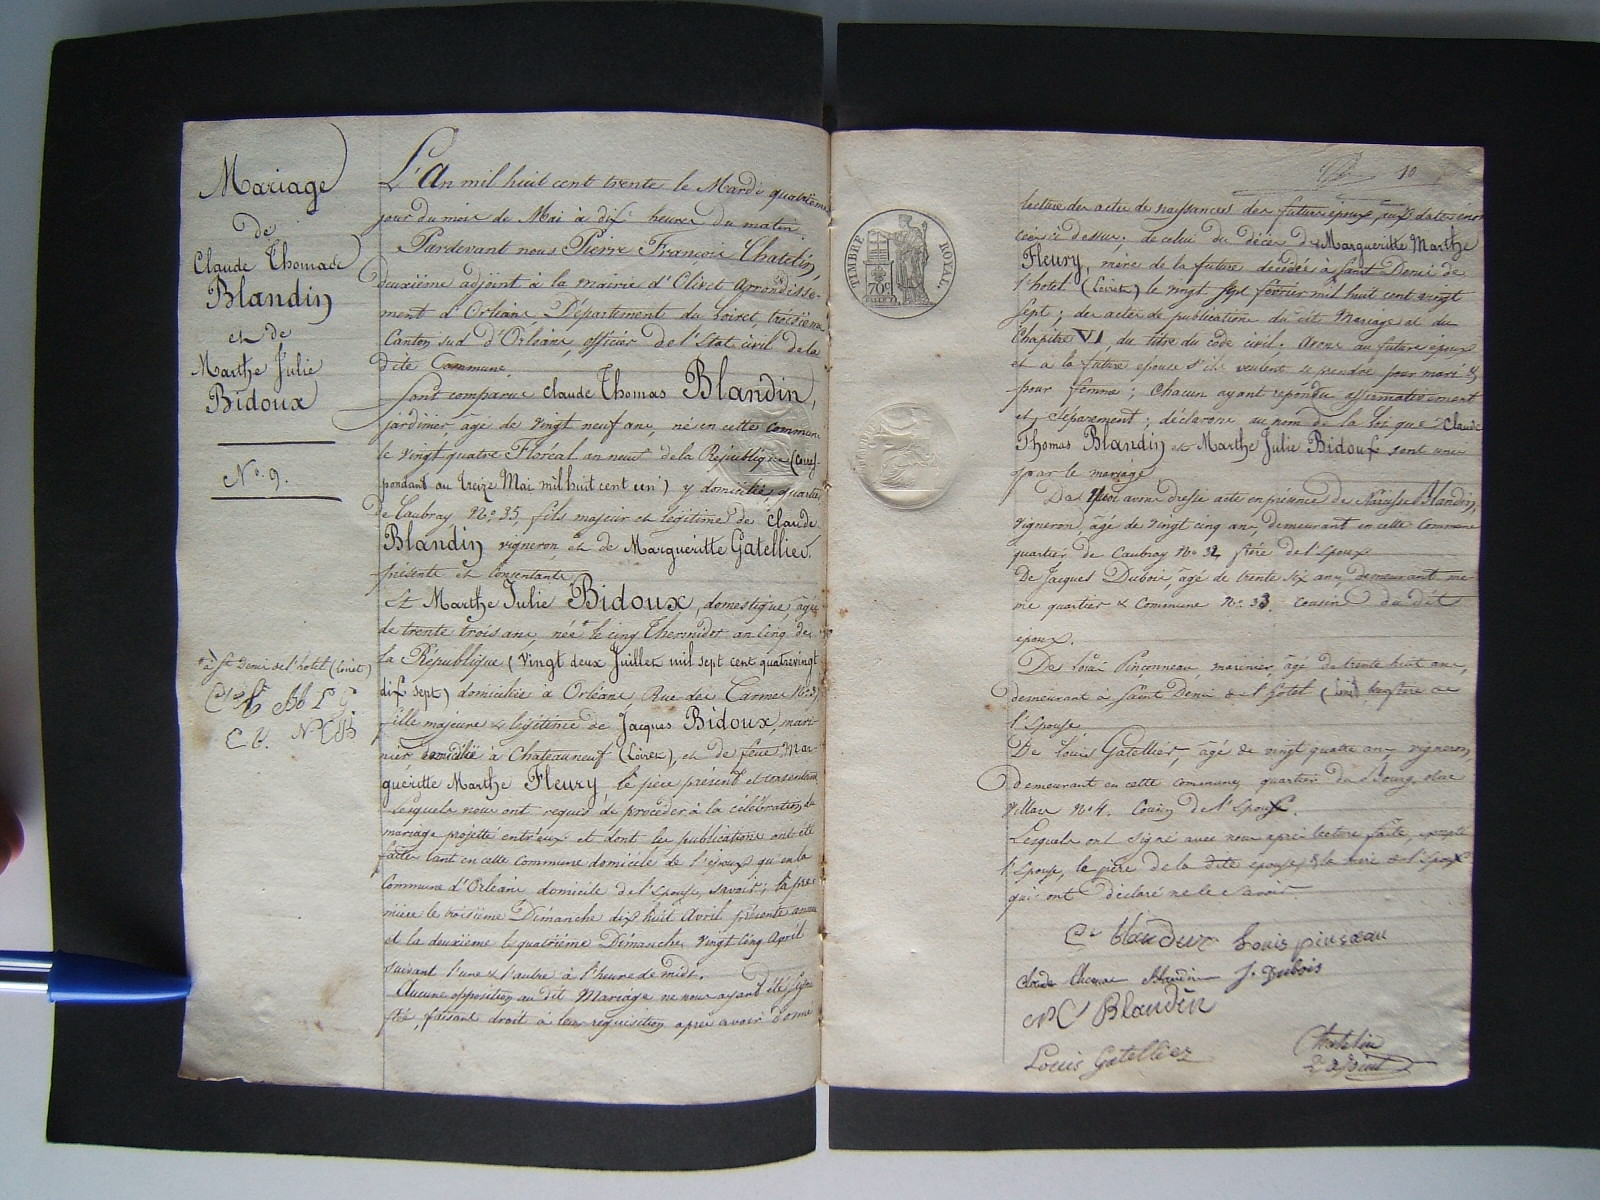 Mariage
de
Claude Thomas
Blandin
et de
Marthe Julie
Bidoux
N.° 9.
L'An mil huit cent trente le Mardi quatrième
jour du mois de Mai à dix heures du matin.
Pardevant nous Pierre François Chatelin,
deuxième adjoint à la mairie d'Olivet Arrondisse-
ment d'Orléans, Département du Loiret, troisième
Canton sud d'Orléans, officier de l'Etat civil de la
dite Commune.
Sont comparus Claude Thomas Blandin,
jardinier, âgé de vingt neuf ans, né en cette Commune
le vingt quatre Floréal an neuf de la République (Corres-
pondant au treize Mai mil huit cent un) y domicilié, quartier
de Caubray N.° 35, fils majeur et légitime de Claude
Blandin vigneron, et de Margueritte Gatellier.
présents et consentants
Et Marthe Julie Bidoux, domestique, âgée
de trente trois ans, née * le cinq Thermidor an cinq de
la République (vingt deux Juillet mil sept cent quatrevingt
dix sept) domiciliée à Orléans, Rue des Carmes N.°
fille majeure & légitime de Jacques Bidoux, mari-
nier, domicilié à Chateauneuf (Loiret), et de feue Mar-
gueritte Marthe Fleury le père présent et consentant
Lesquels nous ont requis de procéder à la célébration du
mariage projetté entr'eux et dont les publications ont été
faites tant en cette Commune domicile de l'époux qu'en la
Commune d'Orléans domicile de l'Epouse, savoir; la pre-
mière le troisième Dimanche dix huit Avril présente année
et la deuxième le quatrième Dimanche, vingt cinq Avril
suivant l'une & l'autre à l'heure de midi.
Aucune opposition au dit Mariage ne nous ayant été signi-
fiée, faisant droit à leur réquisition après avoir donné
* à St Denis de l'hotel (Loiret)
10
TIMBRE ROYAL.
70c
lecture des actes de naissances des futurs époux
ci dessus; de celui du décès de Margueritte Marthe
Fleury, mère de la future décédée à Saint Denis de
l'hotel (Loiret) le vingt sept février mil huit cent vingt
sept; des actes de publications du dit Mariage et du
Chapitre VI, du titre du code civil. Avons au future époux
et à la future épouse s'ils veulent se prendre pour mari &
pour femme; Chacun ayant répondu affirmativement
et séparément; déclarons au nom de la loi que Claude
Thomas Blandin et Marthe Julie Bidoux sont unis
par le mariage
De quoi avons dressé acte en présence de Narcisse Blandin,
vigneron, âgé de vingt cinq ans, demeurant en cette Commune
quartier de Caubray N° 32 frère de l'Epoux
De Jacques Dubois, âgé de trente six ans, demeurant mê-
me quartier & Commune N.° 33, cousin du dit
époux.
De Louis Pinçonneau, marinier, âgé de trente huit ans,
demeurant à Saint Denis de l'hotel (Loiret) beaufrère de
l'Epouse
De Louis Gatellier, âgé de vingt quatre ans, vigneron,
demeurant en cette commune, quartier du Bourg,
N° 4. Cousin de l'Epoux.
Lesquels ont signé avec nous après lecture faite, excepté
l'Epouse, le père de la dite épouse & la mère de l'Epoux
qui ont déclaré ne le savoir.
Louis pinseau
Claude Thomas Blandin J. Dubois
Blandin
Louis Gatellier
Chatelin